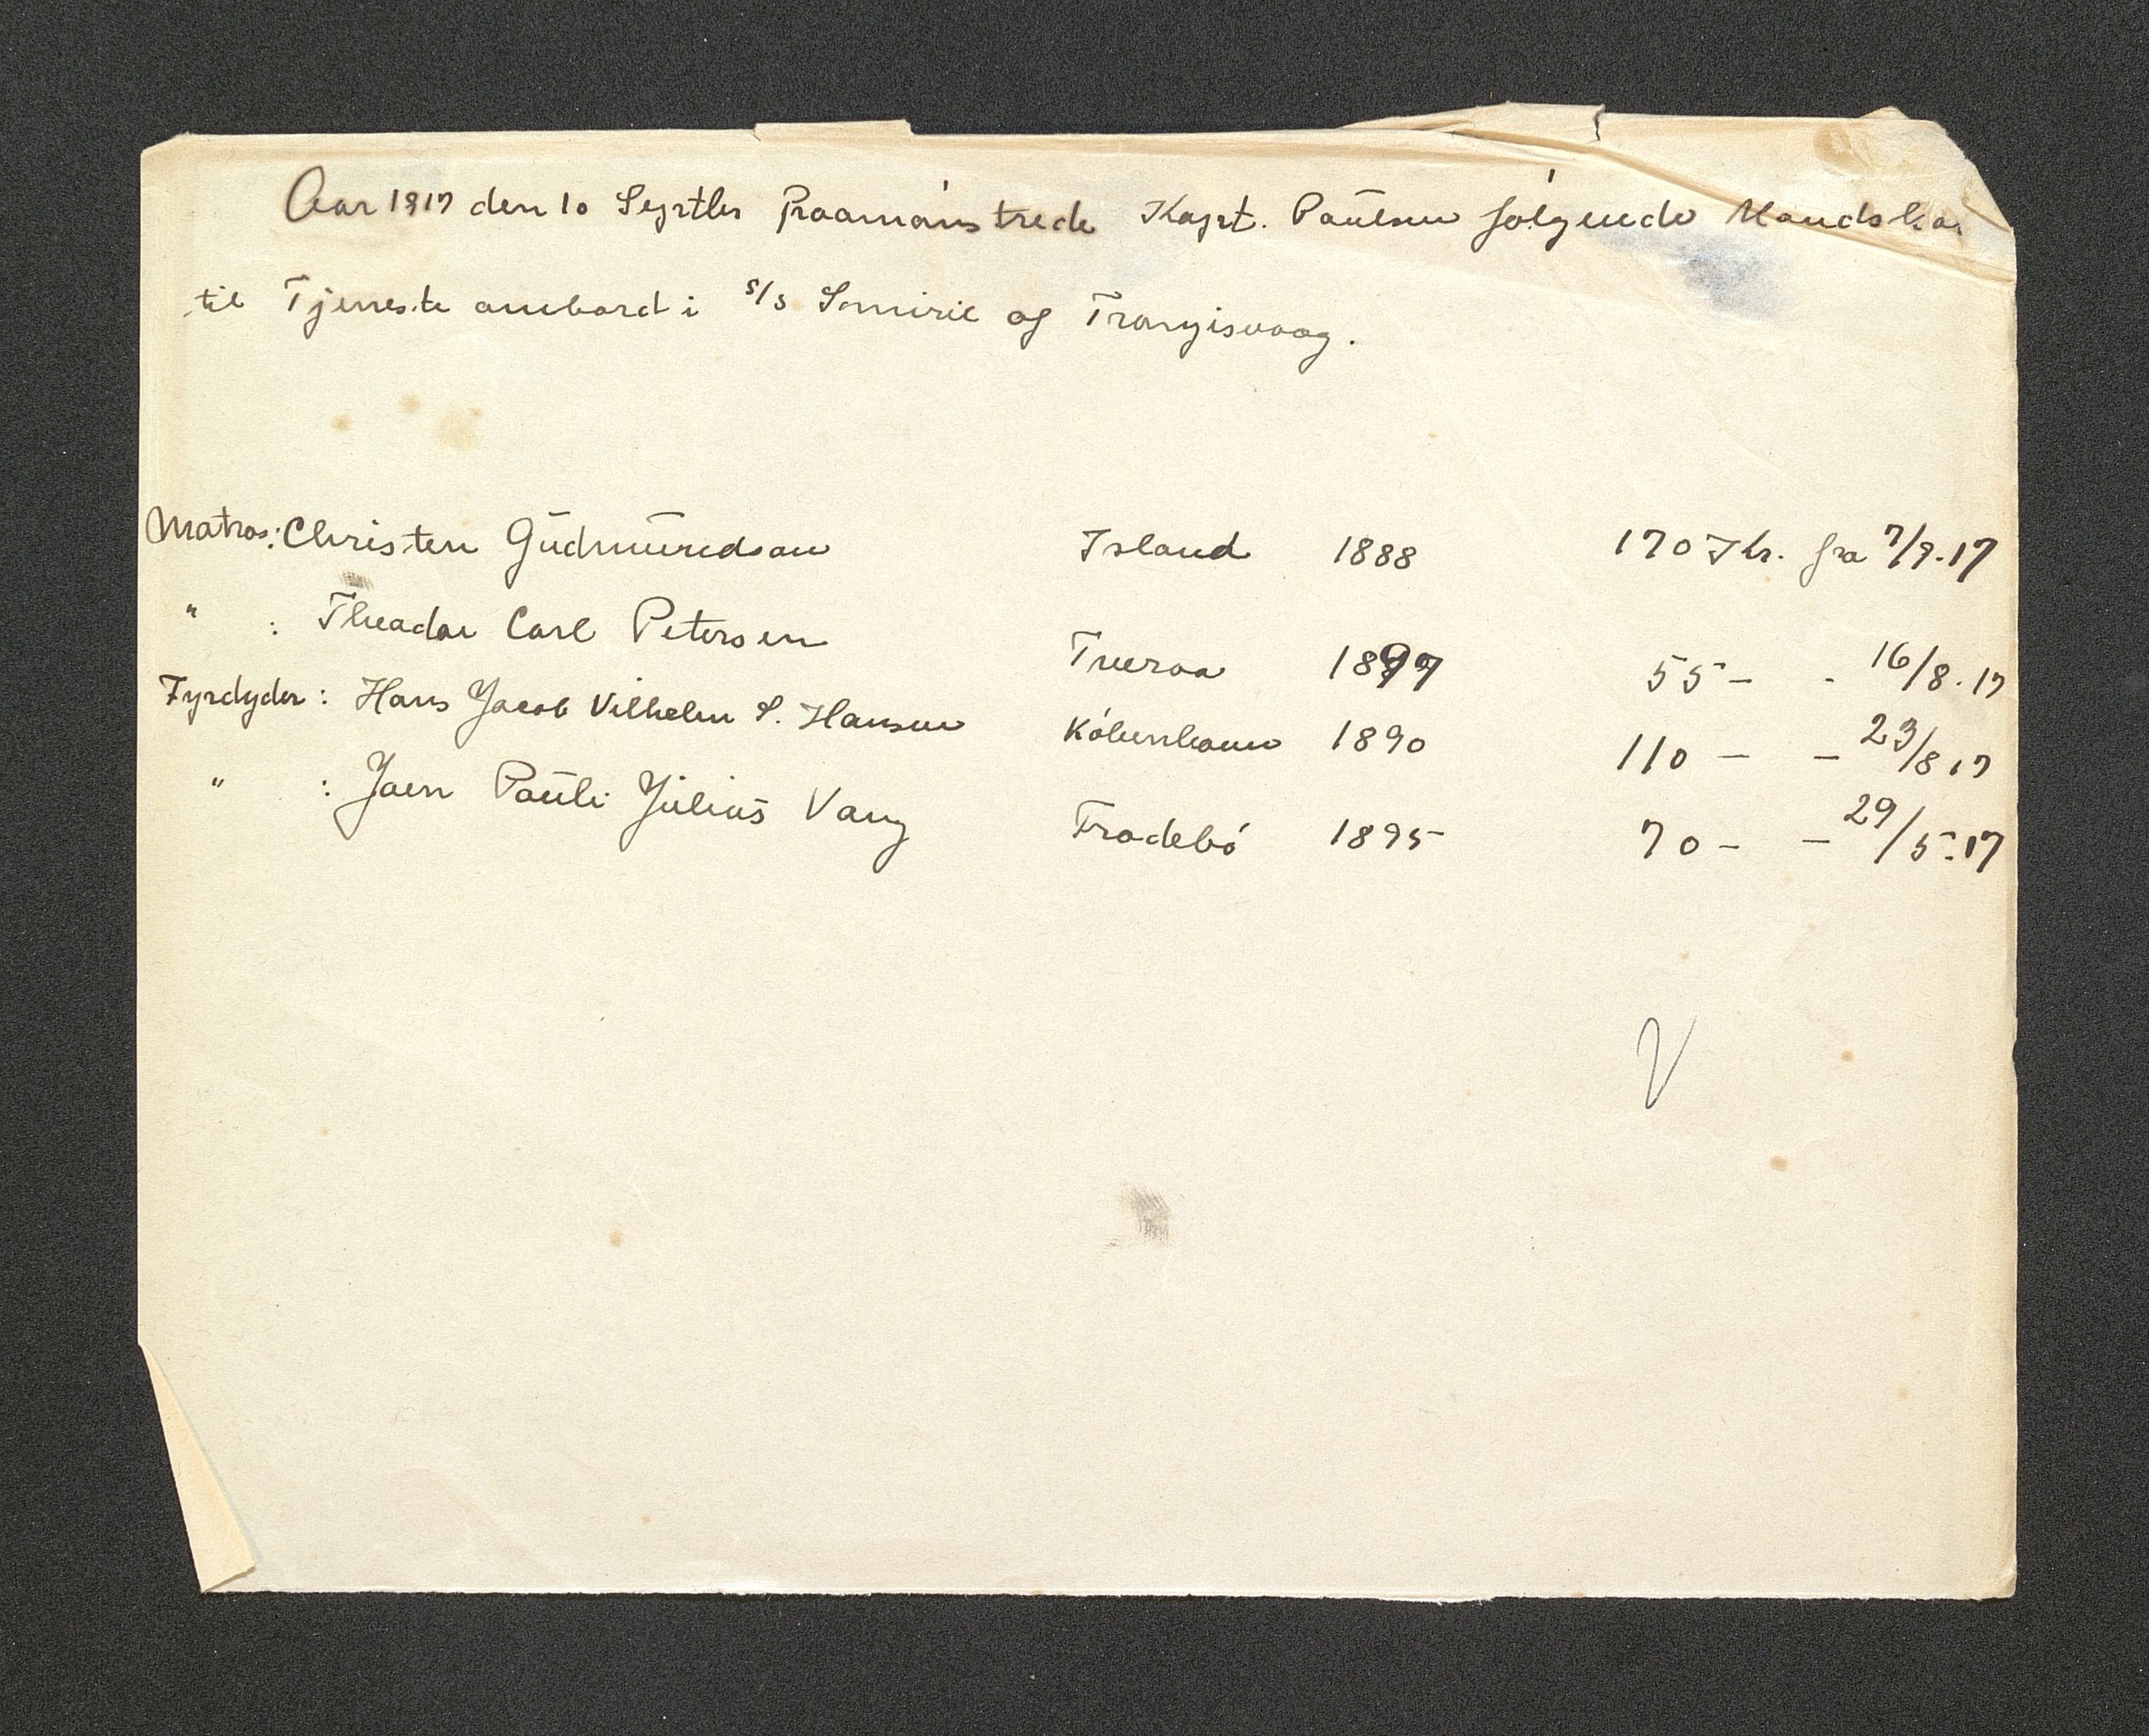 Aar 1917 den 10 Septbr paamønstrede Kapt. Paulsen følgende Mandska
til Tjeneste ombord i s/s Smiril og Trangisvaag.
Matros: Christen Gudmundson Island 1888 170 Kr. fra 7/9.17
" : Theador Carl Petersen Tveraa 1899 55 - - 16/8.17
Fyrbøder: Hans Jacob Vilhelm S. Hansen København 1890 110 - - 23/8 17
" : Joen Pauli Julius Vang Frodebø 1895 70 - - 29/5.17